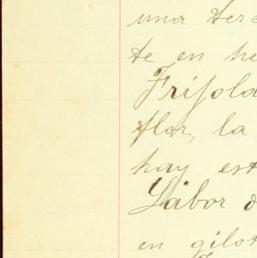 una ter
te en he
Frijola
flor, la
hay est
Labor d
en gilot